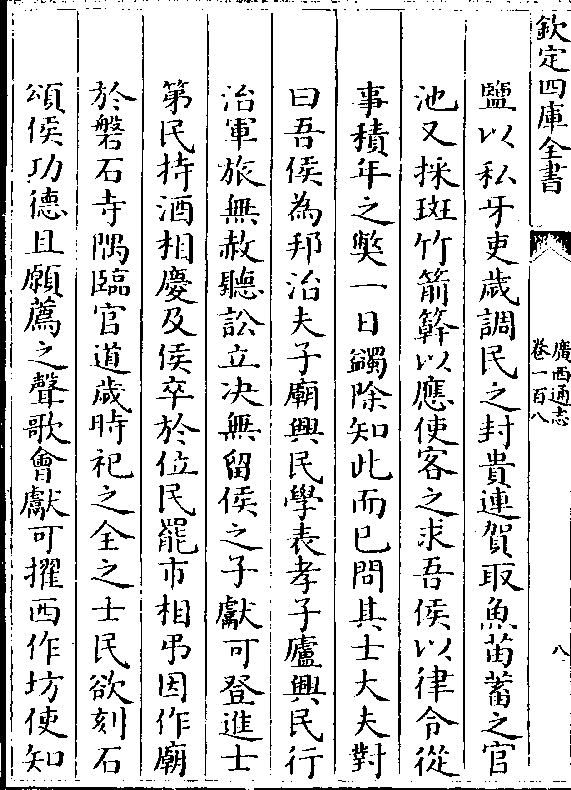 欽定四庫全書
廣西通志
卷一百八
八
鹽以私牙吏歳調民之封貴連賀取魚苗蓄之官
池又採斑竹箭簳以應使客之求吾侯以律令從
事積年之獘一日蠲除知此而已問其士大夫對
曰吾侯為邦治夫子廟興民學表孝子廬興民行
治軍旅無赦聽訟立决無留侯之子獻可登進士
第民持酒相慶及侯卒於位民罷市相弔因作廟
於磐石寺隅臨官道歳時祀之全之士民欲刻石
頌侯功德且願薦之聲歌會獻可擢西作坊使知